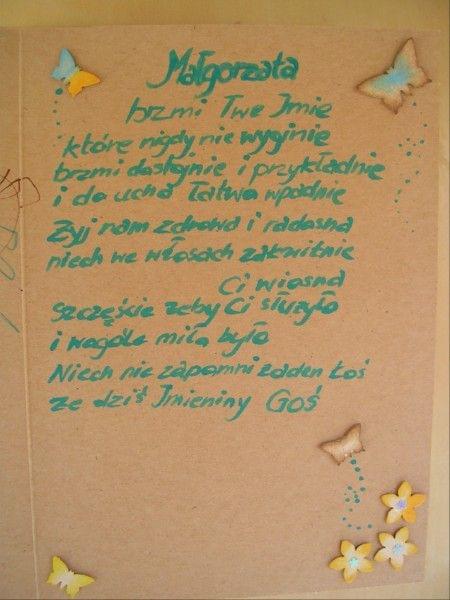 Małgorzata
brzmi Twe Imię
które nigdy nie wyginie
brzmi dostojnie i przykładnie
i do ucha łatwo wpadnie
Żyj nam zdrowa i radosna
niech we włosach zakwitnie
Ci wiosna
Szczęście żeby Ci służyło
i wogóle miło było
Niech nie zapomni żaden Łoś
że dziś Imieniny Goś